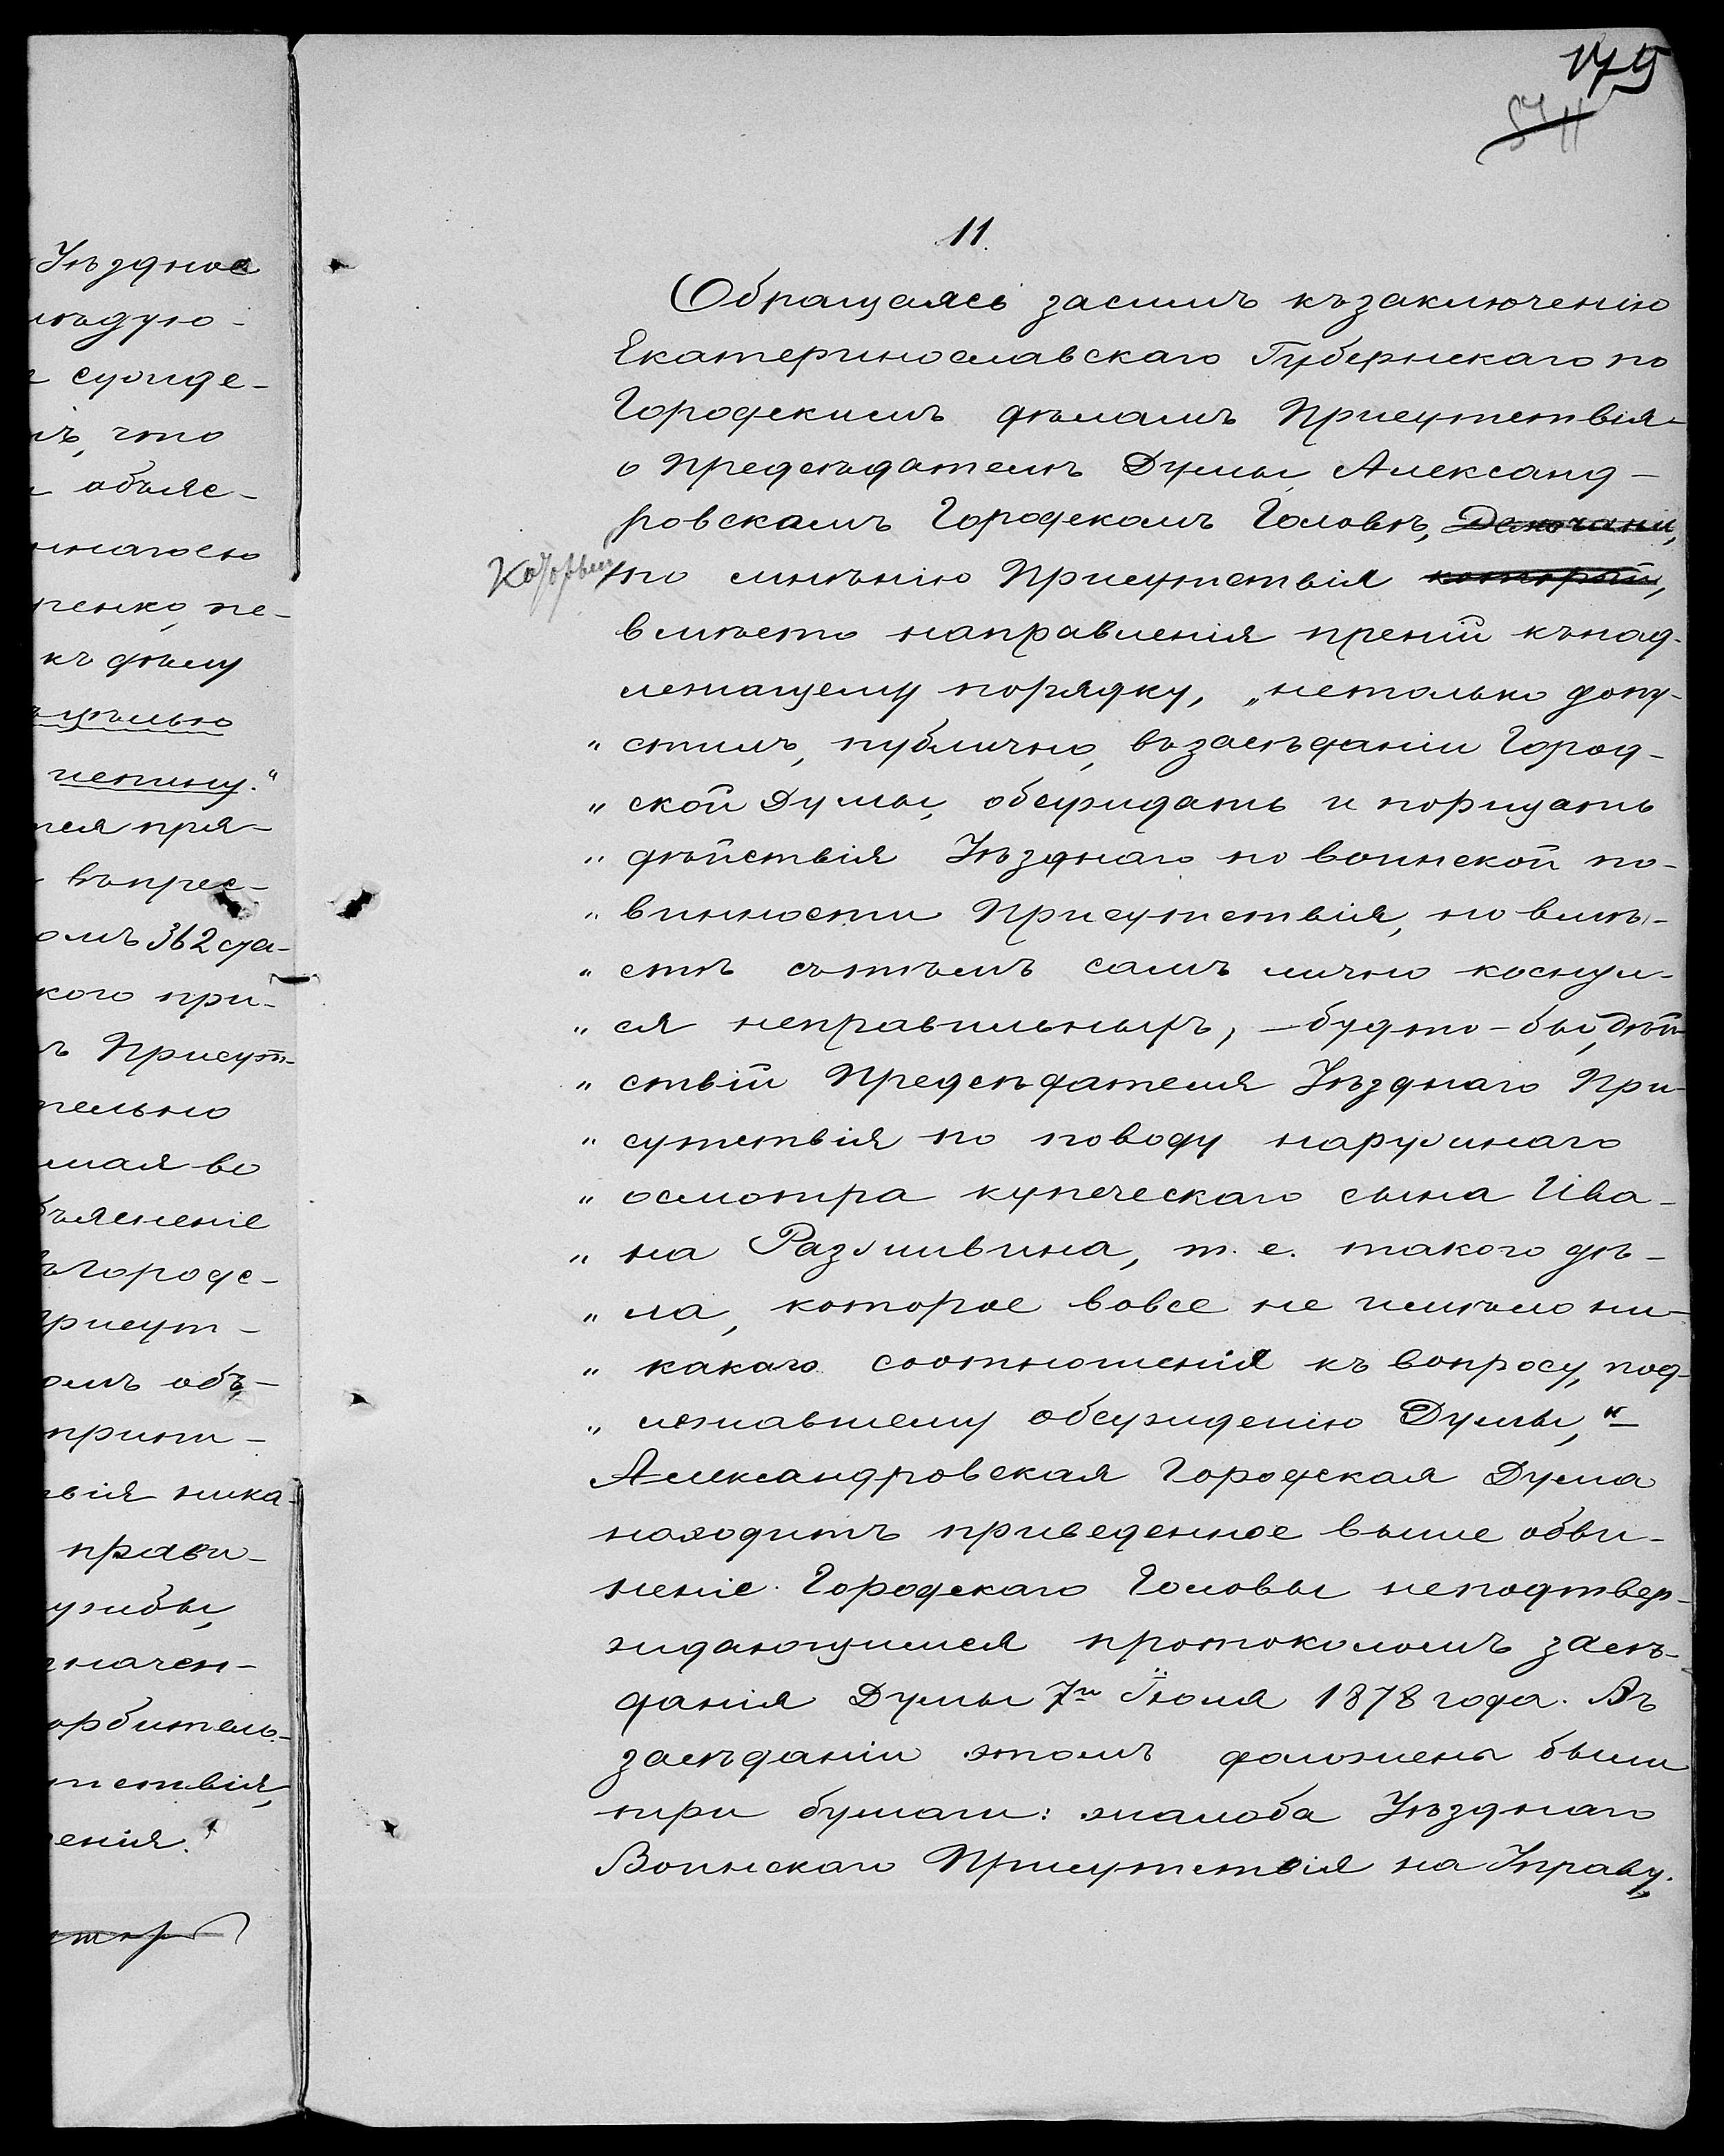 175
11.
Обращаясь засимъ къ заключенію
Екатеринославскаго Губернскаго по
Городскимъ дѣламъ Присутствія
о предсѣдателѣ Думы, Александ-
ровскомъ Городскомъ Головѣ,
который
по мнѣнію Присутствія который,
вмѣсто направленія преній къ над-
лежащему порядку, „нетолько допу-
„ стилъ, публично, въ засѣданіи Город-
„ ской Думы, обсуждать и порицать
„ дѣйствія Уѣзднаго по воинской по-
„ винности Присутствія, но вмѣ-
„ стѣ съ тѣмъ самъ лично коснул-
„ ся неправильныхъ, – будто-бы, дѣй-
„ ствій Предсѣдателя Уѣзднаго При-
„ сутствія по поводу наружнаго
„ осмотра купеческаго сына Ива-
„ на Разживина, т. е. такого дѣ-
„ ла, которое вовсе не имѣло ни-
„ какаго соотношенія къ вопросу, под-
„ лежавшему обсужденію Думы,“ –
Александровская Городская Дума
находитъ приведенное выше обви-
неніе Городскаго Головы неподтвер-
ждающимся протоколомъ засѣ-
данія Думы 7го Іюля 1878 года. Въ
засѣданіи этомъ доложены были
три бумаги: жалоба Уѣзднаго
Воинскаго Присутствія на Управу,
Уѣздное
ѣдую-
сужде-
ъ, что
объяс-
ренко, не-
къ дѣлу
цѣлью
истину.“
ся пря-
въ прес-
омъ 362 ста-
кого при-
ъ Присут-
тельно
мая во
бъясненіе
ъ городс-
рисут-
омъ объ-
вія ника-
прави-
ужбы,
значен-
орбитель-
тствія,
енія.“